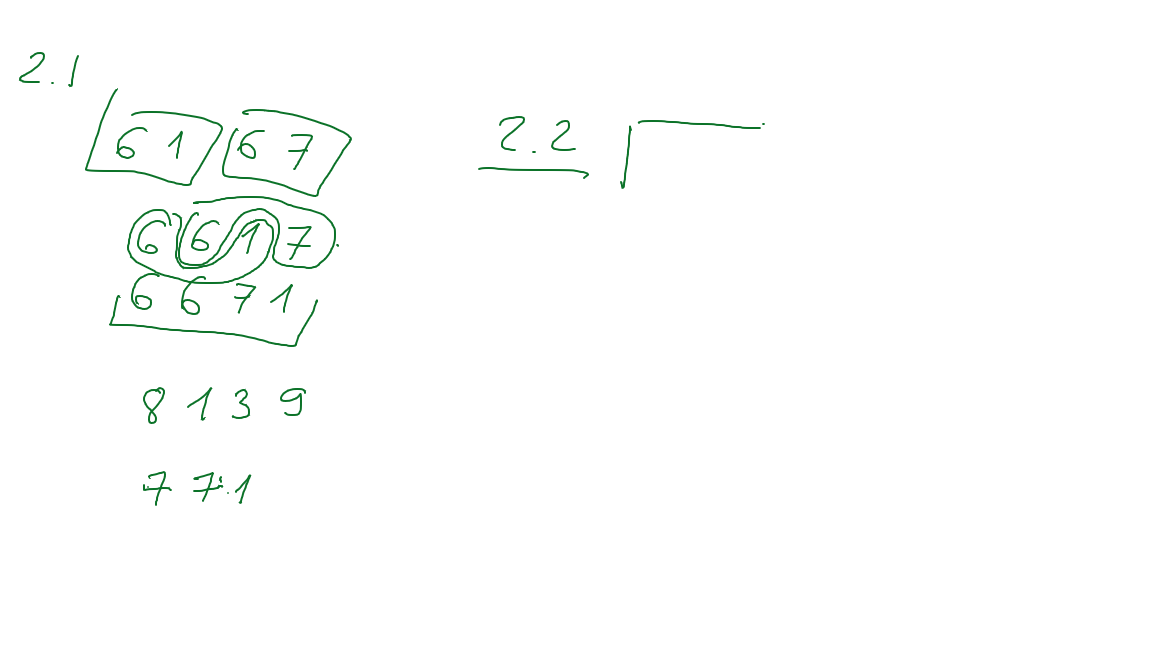 2.1
61 67
6 6 1 7
6 6 7 1
8 1 3 9
7 7 1
2.2